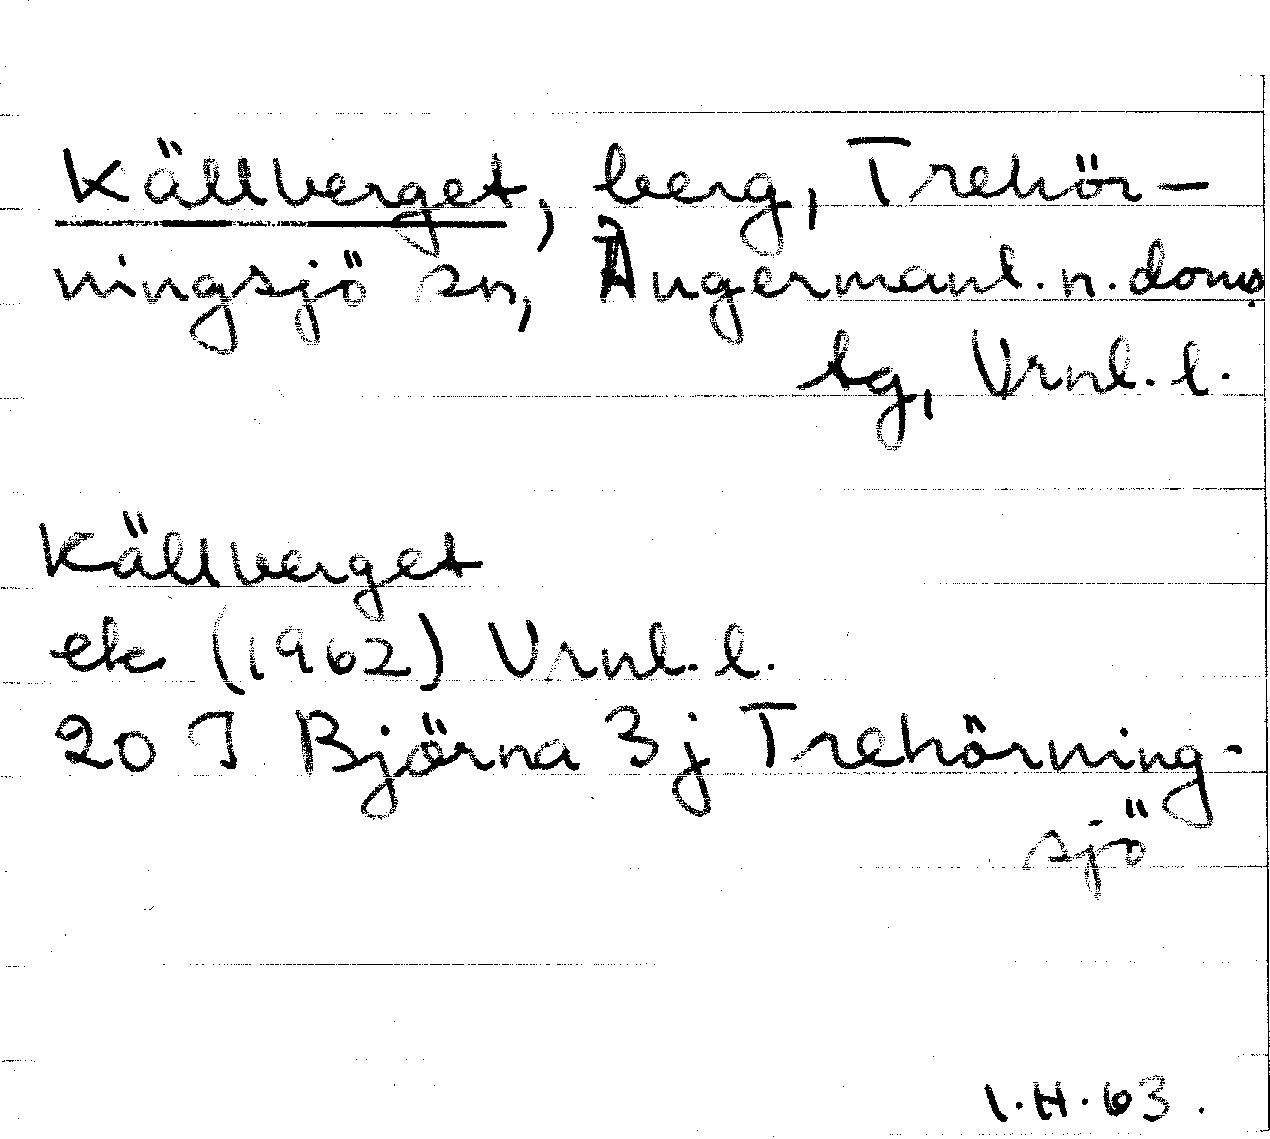 Källberget, berg, Trehör-
ningsjö sn, Ångermanl. n. doms
tg, Vrnl. l.
Källberget
ek (1962) Vrnl. l.
20 J Björna 3j Trehörning-
sjö
I.H.63.